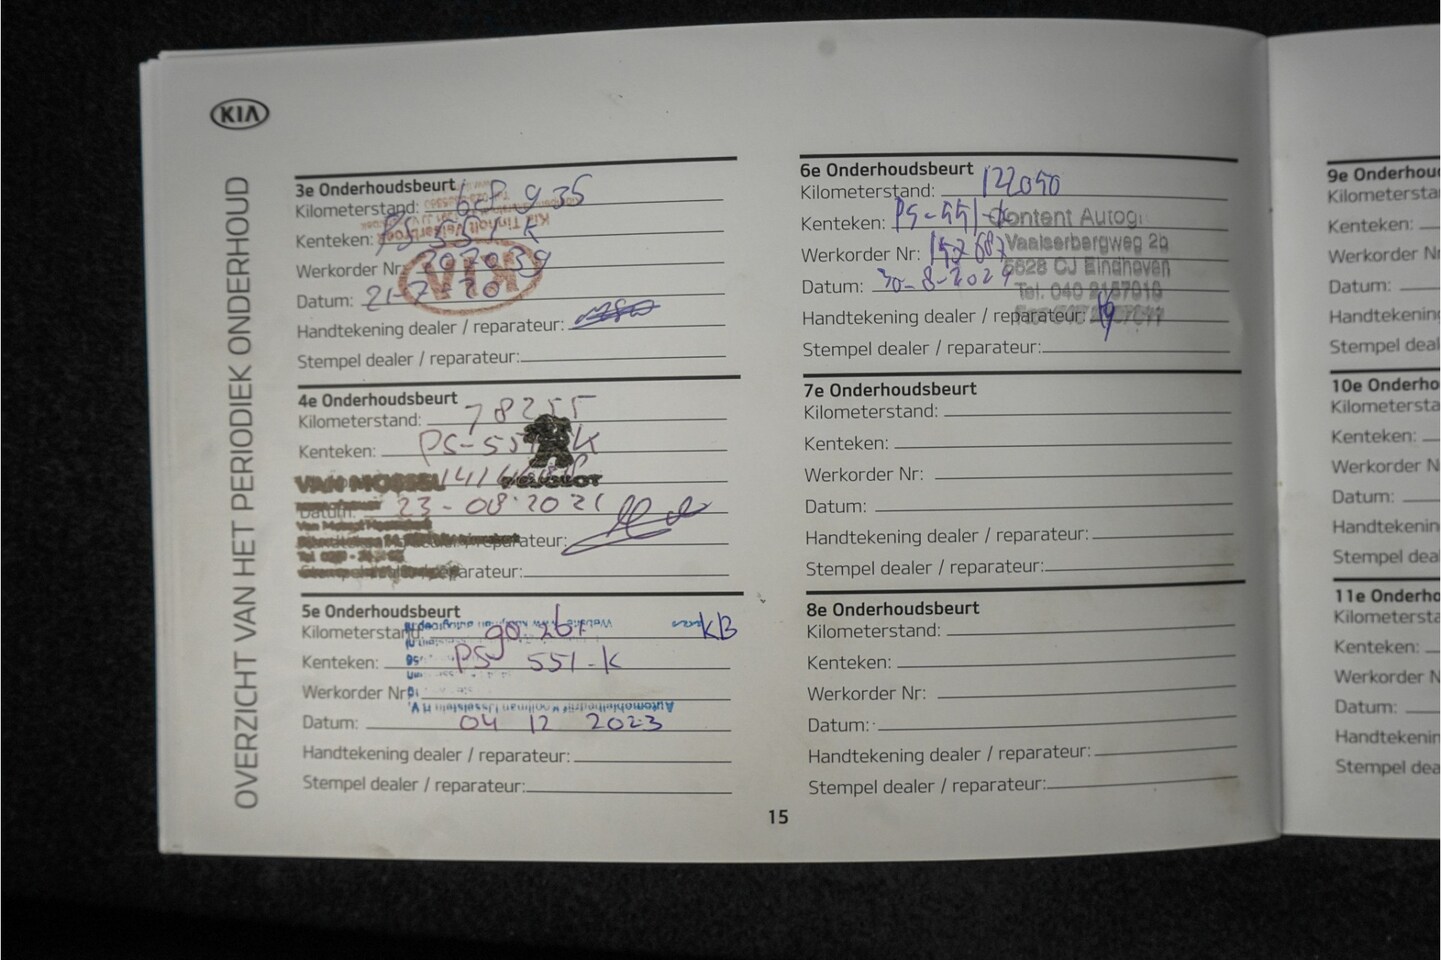 KIA
OVERZICHT VAN HET PERIODIEK ONDERHOUD
3e Onderhoudsbeurt
Kilometerstand:
Kenteken: PS 551 K
Werkorder Nr: 202039
Datum: 21-7-20
KIA
Handtekening dealer / reparateur:
Stempel dealer / reparateur:
4e Onderhoudsbeurt
Kilometerstand: 78255
Kenteken: PS-551-K
VAN MOSSEL PEUGEOT
Datum: 23-08-2021
reparateur:
reparateur:
5e Onderhoudsbeurt
Kilometerstand: 90.261 KB
Kenteken: PS 551-K
Werkorder Nr:
Automobielbedrijf IJsselstein
Datum: 04 12 2023
Handtekening dealer / reparateur:
Stempel dealer / reparateur:
15
6e Onderhoudsbeurt
Kilometerstand: 122050
Kenteken: PS-551-K
Content Autogr
Werkorder Nr: 157687
Vaalserbergweg 2b
Datum: 30-8-2024
5628 CJ Eindhoven
Tel. 040
Handtekening dealer / reparateur:
Stempel dealer / reparateur:
7e Onderhoudsbeurt
Kilometerstand:
Kenteken:
Werkorder Nr:
Datum:
Handtekening dealer / reparateur:
Stempel dealer / reparateur:
8e Onderhoudsbeurt
Kilometerstand:
Kenteken:
Werkorder Nr:
Datum:
Handtekening dealer / reparateur:
Stempel dealer / reparateur:
9e Onderhou
Kilometersta
Kenteken:
Werkorder N
Datum:
Handtekening
Stempel deal
10e Onderho
Kilometersta
Kenteken:
Werkorder N
Datum:
Handtekenin
Stempel dea
11e Onderho
Kilometersta
Kenteken:
Werkorder N
Datum:
Handtekenin
Stempel dea